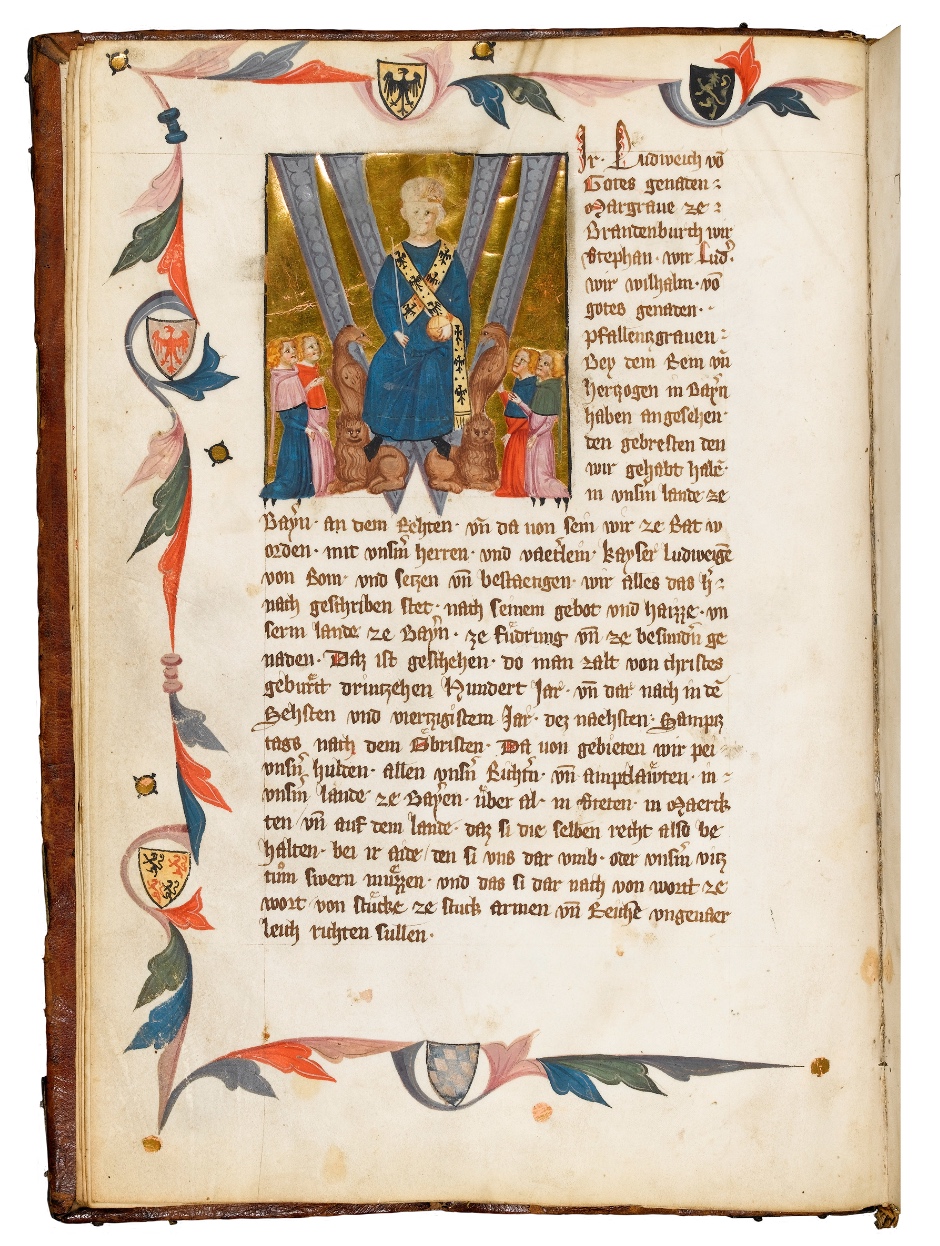 Wir · Ludweich vo̅
Gotes genaden :
Margraue ze :
Brandenburch wir
Stephan · wir Lud̾
wir wilhalm · vo̅
gotes genaden ·
pfallentzgrauen :
Bey dem Rein vn̅
hertzogen in Bay̾n
haben angesehen ·
den gebresten den
wir gehabt habe̅ ·
in vnsm̾ lande ze
Bay̾n · an dem Rehten · vn̅ da uon sein wir ze Rat w
orden · mit vnsm̾ herren · vnd vaeterlein · kayser Ludweige̅
von Rom · vnd setzen vn̅ bestaetigen · wir alles das h̾ :
nach geschriben stet · nach seinem gebot vnd haizze · vn
serm lande ze Bay̾n · ze fuͤdrung vn̅ ze besundn̾ ge
naden · Daz ist geschehen · do man zalt von christes
geburtt drivtzehen Hundert Jar · vn̅ dar nach in de̅
Sehsten vnd viertzigistem Jar · dez naehsten · Sampz
tags nach dem Obristen · Da uon gebieten wir pei ·
vnsn̾ hulden · allen vnsn̾ Richtn̾ · vn̅ amptlaͤwten · in :
vnsm̾ lande ze Bayen · uͤber al · in Steten · in Maerck
ten vn̅ auf dem lande · daz si die selben recht also be
halten · bei ir aide / den si vns dar vmb · oder vnsm̾ vitz
tuͦm swern muͤzzen · vnd das si dar nach von wort ze
wort von stuͤcke ze stuck armen vn̅ Reiche̅ vngeuaer
leich richten sullen ·